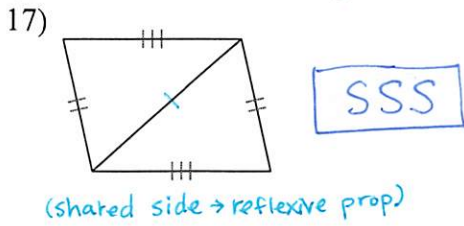 17)
SSS
(shared side → reflexive prop)